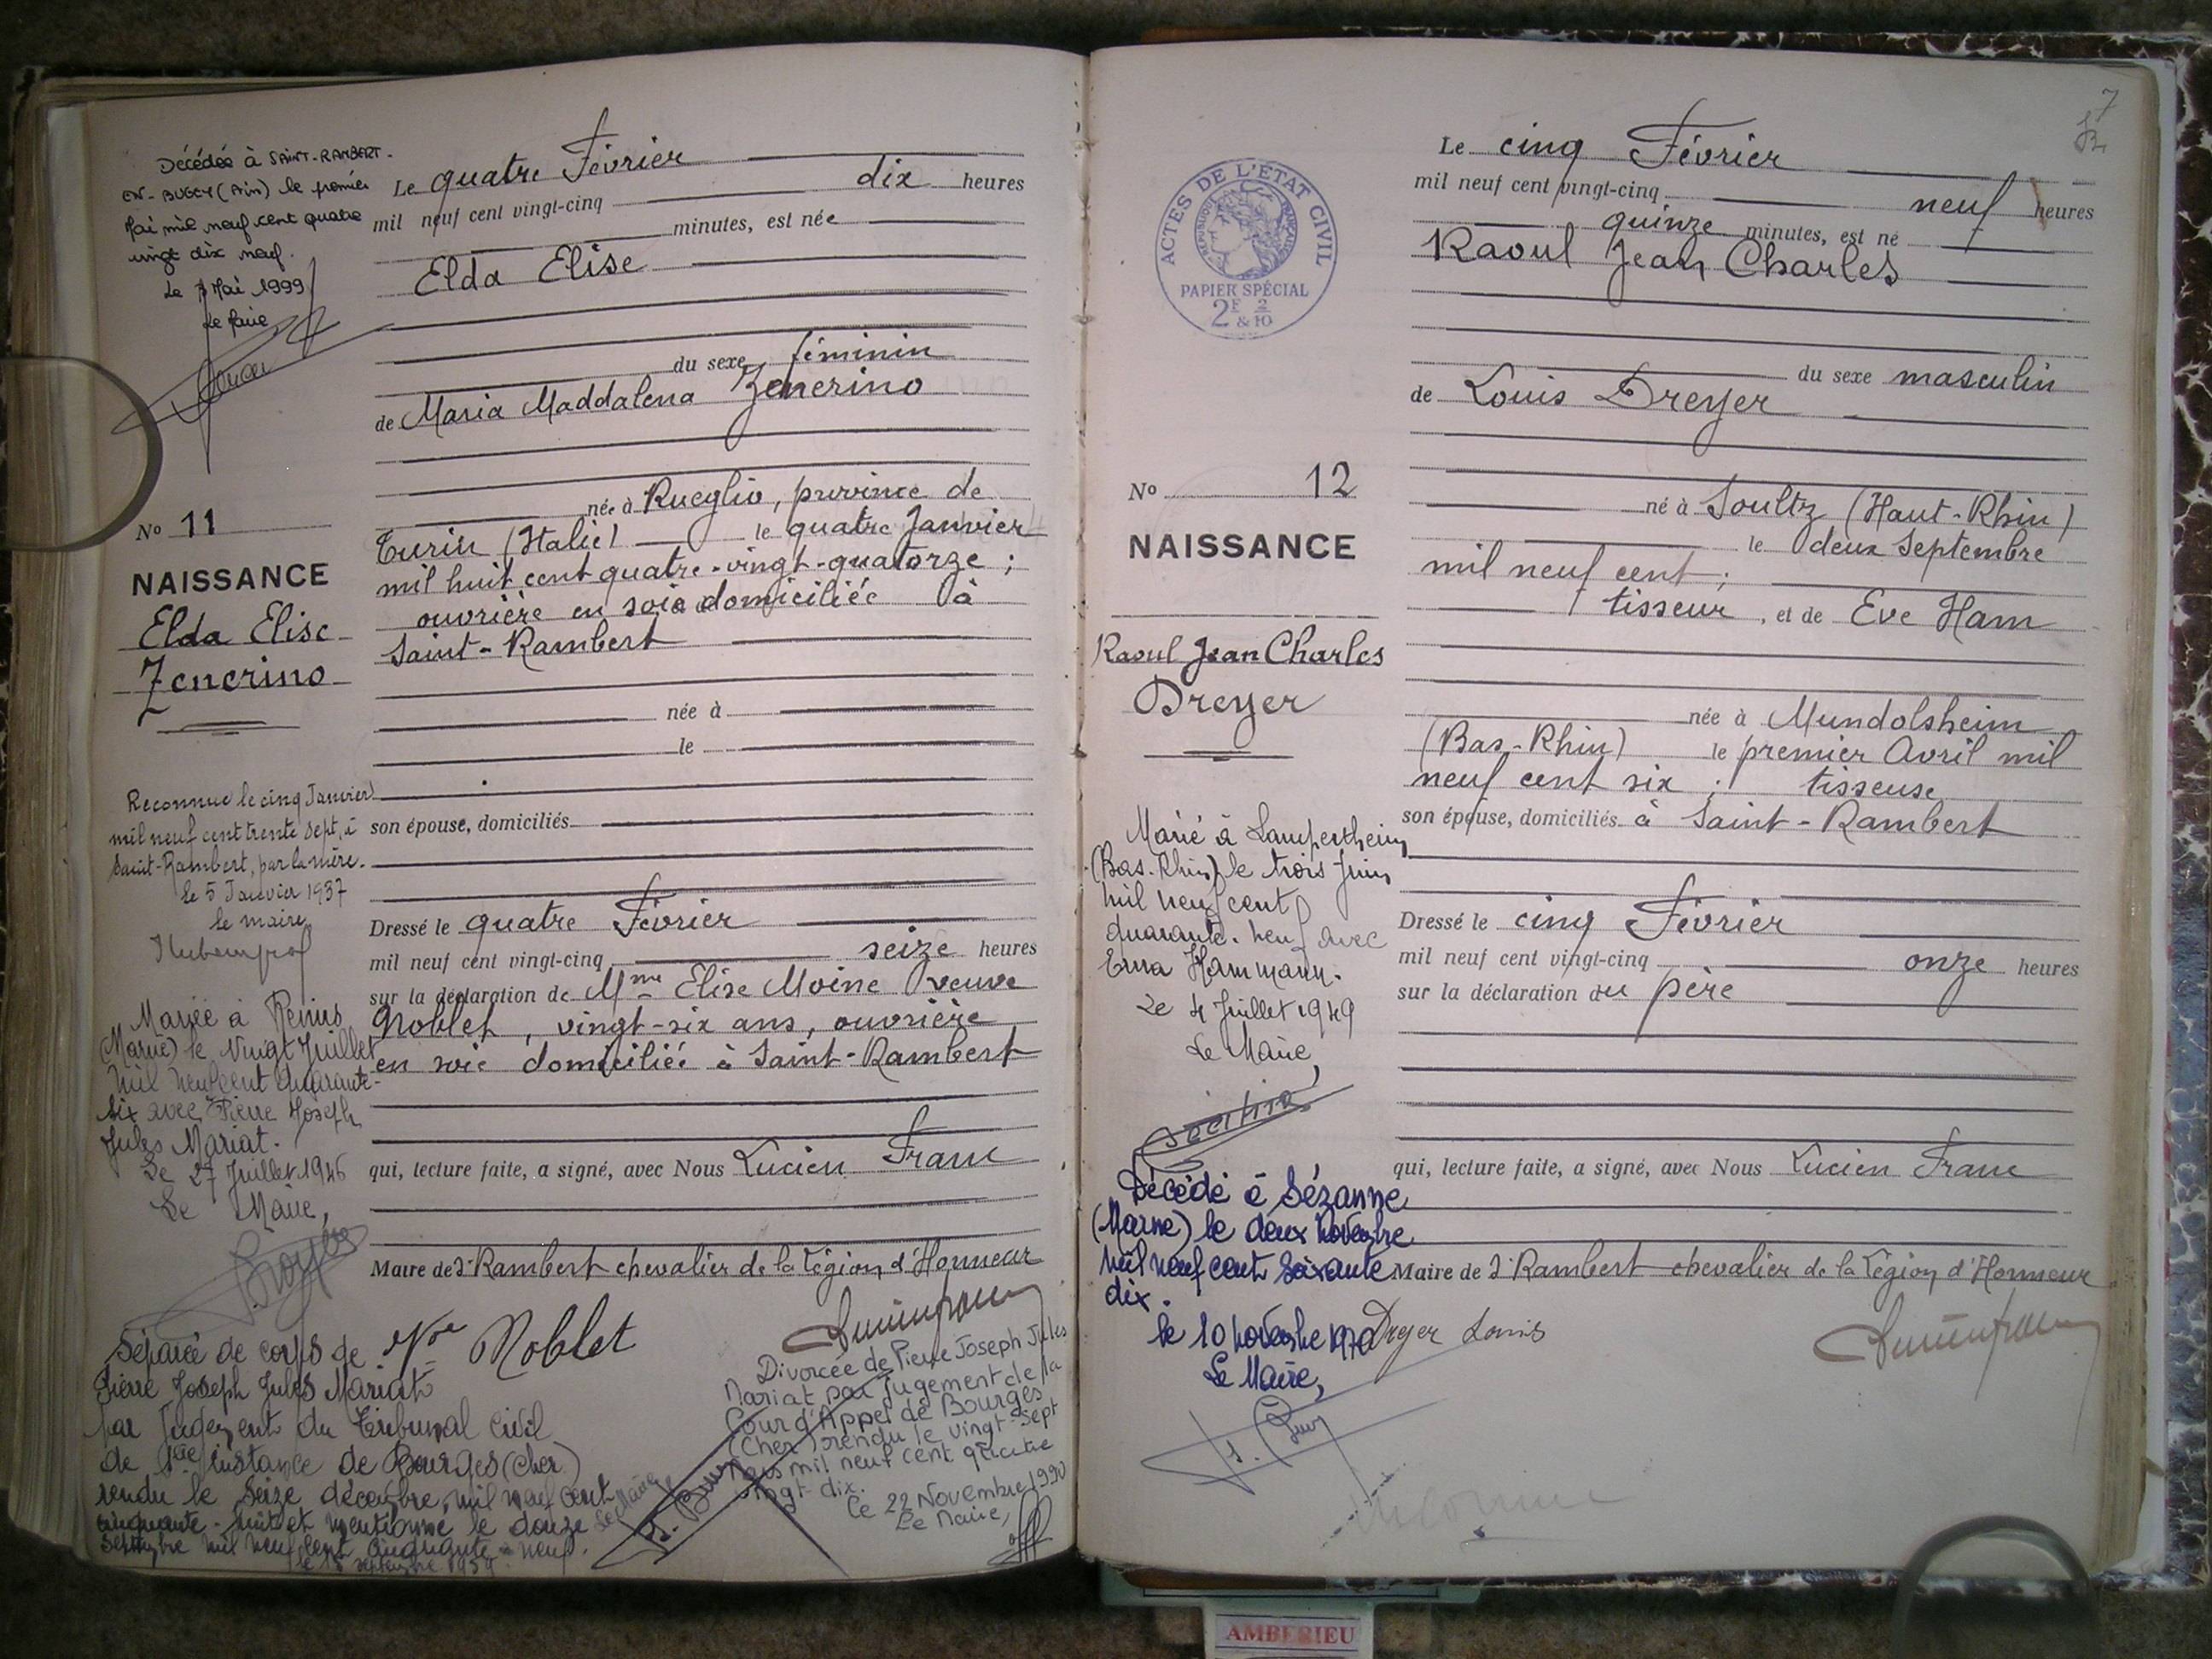 Décédée à SAINT-RAMBERT-
EN-BUGEY (Ain) le premier
Mai mil neuf cent quatre
vingt dix neuf.
Le 7 Mai 1999
Le Maire
No 11
NAISSANCE
Elda Elise
Zenerino
Reconnue le cinq Janvier
mil neuf cent trente sept, à
Saint-Rambert, par la mère.
Le 5 Janvier 1937
le maire
Mariée à Reims
(Marne) le Vingt Juillet
mil neuf cent quarante-
six avec Pierre Joseph
Jules Mariat.
Le 27 Juillet 1946
Le Maire,
Séparée de corps de
Pierre Joseph Jules Mariat
par Jugement du Tribunal Civil
de 1ère instance de Bourges (Cher)
rendu le seize décembre mil neuf cent
cinquante-huit et mentionné le douze
septembre mil neuf cent cinquante-neuf.
septembre 1959.
Le Maire
Le quatre Février
mil neuf cent vingt-cinq dix heures
minutes, est née
Elda Elise
du sexe féminin
de Maria Maddalena Zenerino
née à Rueglio, province de
Turin (Italie) le quatre Janvier
mil huit cent quatre-vingt-quatorze ;
ouvrière en soie domiciliée à
Saint-Rambert
née à
le
son épouse, domiciliés
Dressé le quatre Février
mil neuf cent vingt-cinq seize heures
sur la déclaration de Mme Elise Moine veuve
Noblet, vingt-six ans, ouvrière
en soie domiciliée à Saint-Rambert
qui, lecture faite, a signé, avec Nous Lucien Franc
Maire de St Rambert chevalier de la Légion d'Honneur
Vve Noblet
Divorcée de Pierre Joseph Jules
Mariat par jugement de la
Cour d'Appel de Bourges
(Cher) rendu le vingt-sept
Mars mil neuf cent quatre
vingt-dix.
Le 22 Novembre 1990
Le Maire,
7
ACTES DE L'ÉTAT CIVIL
RÉPUBLIQUE FRANÇAISE
PAPIER SPÉCIAL
2F & 2/10
No 12
NAISSANCE
Raoul Jean Charles
Dreyer
Marié à Lampertheim
(Bas-Rhin) le trois Juin
mil neuf cent
quarante-neuf avec
Erna Hammann.
Le 4 Juillet 1949
Le Maire,
Décédé à Sézanne
(Marne) le deux Novembre
mil neuf cent soixante
dix.
le 10 novembre 1970
Le Maire,
Le cinq Février
mil neuf cent vingt-cinq neuf heures
quinze minutes, est né
Raoul Jean Charles
du sexe masculin
de Louis Dreyer
né à Soultz (Haut-Rhin)
le deux Septembre
mil neuf cent ;
tisseur, et de Eve Ham
née à Mundolsheim
(Bas-Rhin) le premier Avril mil
neuf cent six ; tisseuse
son épouse, domiciliés à Saint-Rambert
Dressé le cinq Février
mil neuf cent vingt-cinq onze heures
sur la déclaration du père
qui, lecture faite, a signé, avec Nous Lucien Franc
Maire de St Rambert chevalier de la Légion d'Honneur
Dreyer Louis
AMBERIEU